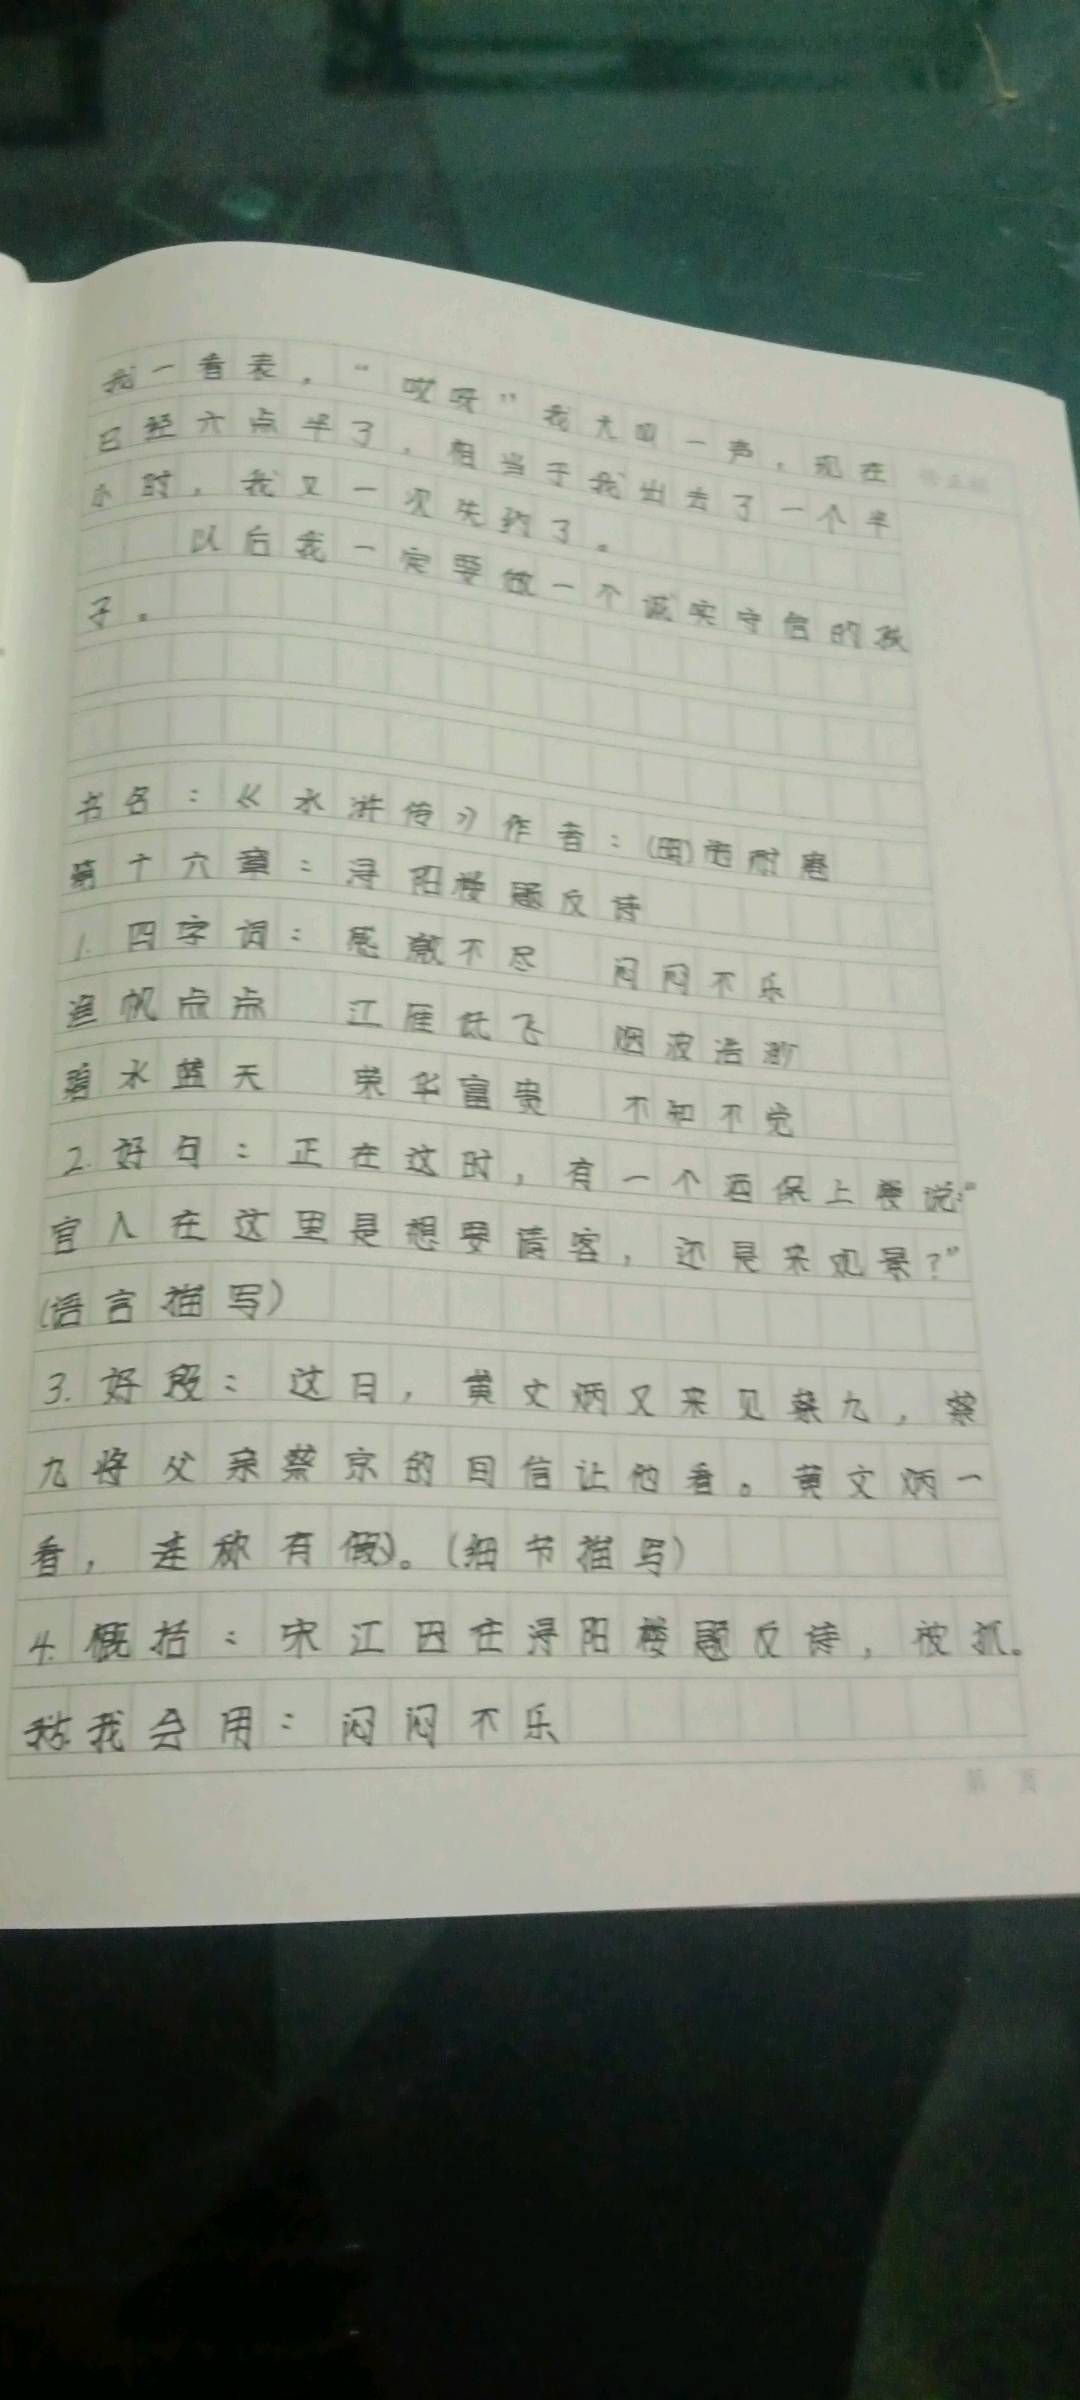 我一看表，“哎呀”我大叫一声，现在
已经六点半了，相当于我出去了一个半
小时，我又一次失约了。
以后我一定要做一个诚实守信的孩
子。
书名：《水浒传》作者：(明)施耐庵
第十六章：浔阳楼题反诗
1.四字词：感激不尽 闷闷不乐
渔帆点点 江雁低飞 烟波浩渺
碧水蓝天 荣华富贵 不知不觉
2.好句：正在这时，有一个酒保上楼说：“
官人在这里是想要请客，还是来观景？”
(语言描写)
3.好段：这日，黄文炳又来见蔡九，蔡
九将父亲蔡京的回信让他看。黄文炳一
看，连称有假。(细节描写)
4.概括：宋江因在浔阳楼题反诗，被抓。
我会用：闷闷不乐